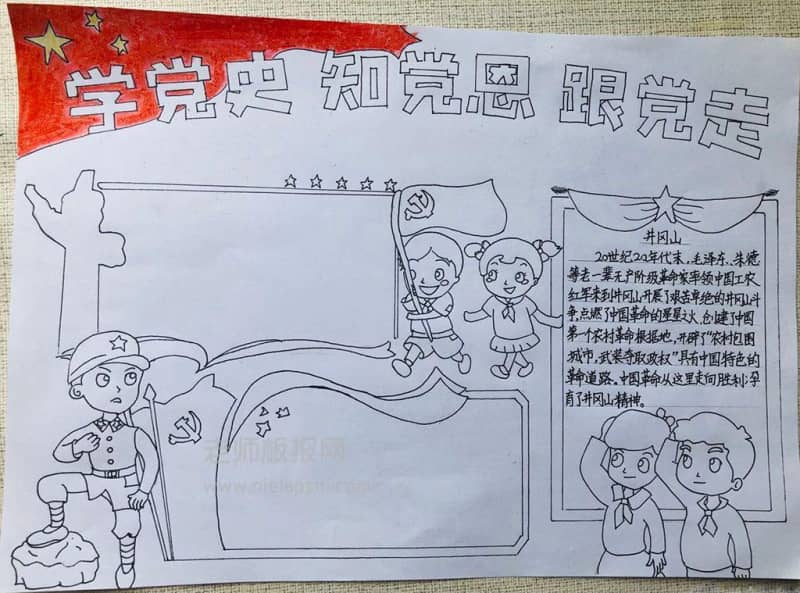 学党史 知党恩 跟党走
井冈山
20世纪20年代末，毛泽东、朱德
等老一辈无产阶级革命家率领中国工农
红军来到井冈山开展了艰苦卓绝的井冈山斗
争，点燃了中国革命的星星之火，创建了中国
第一个农村革命根据地，开辟了“农村包围
城市，武装夺取政权”具有中国特色的
革命道路。中国革命从这里走向胜利；孕
育了井冈山精神。
老师板报网